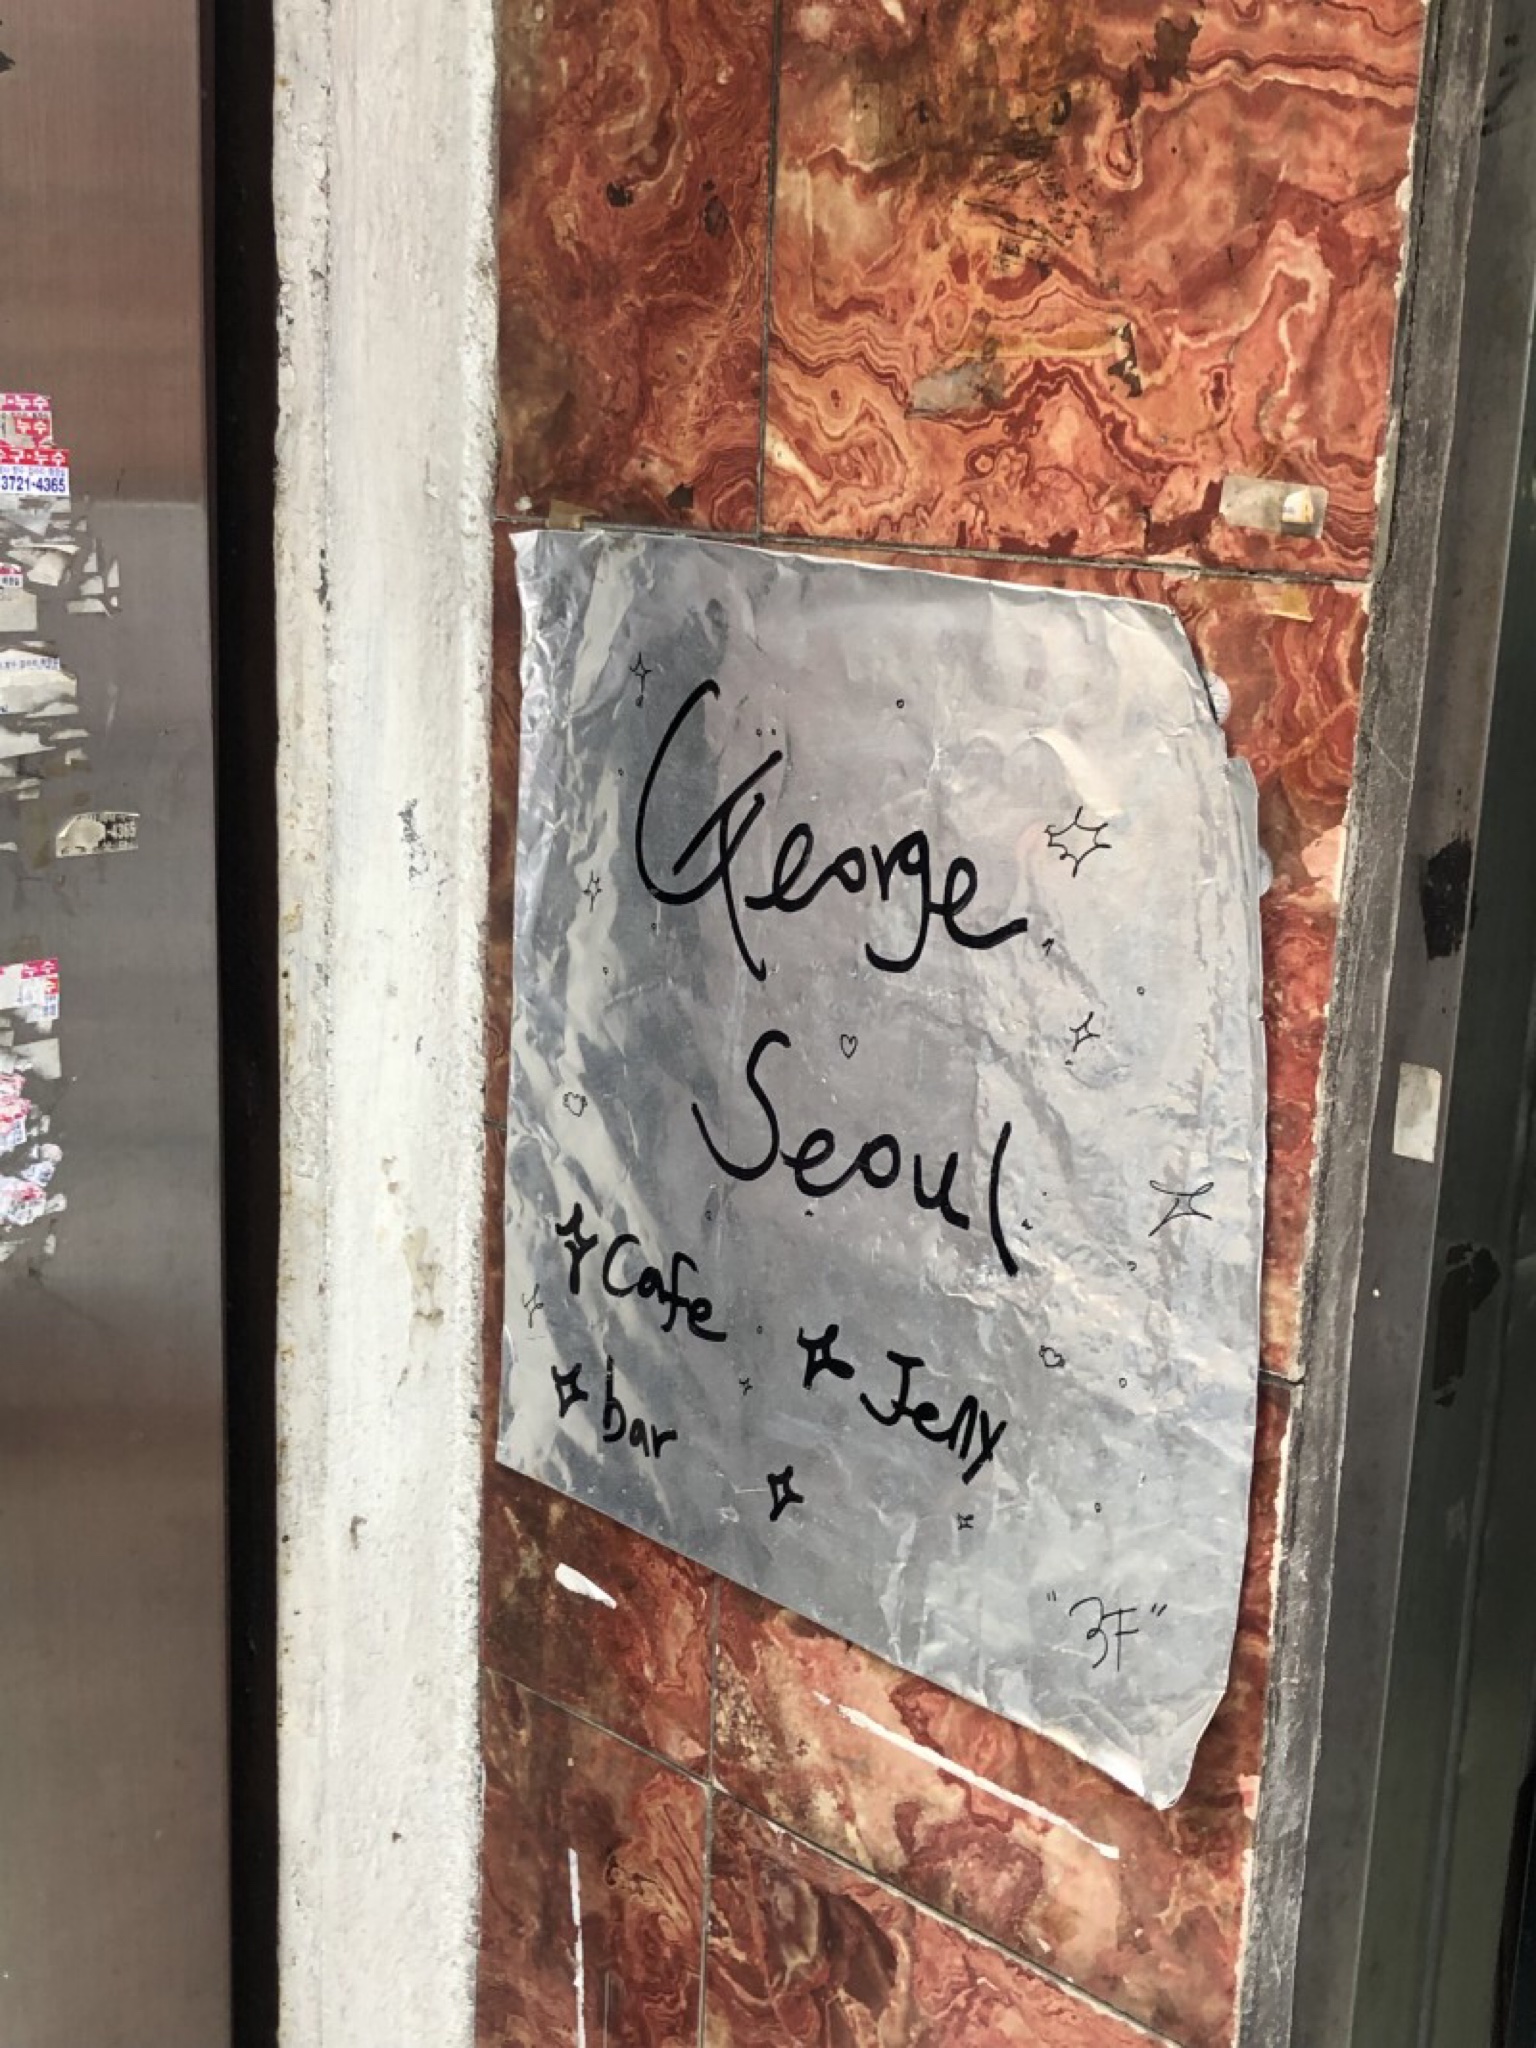 누수
누수
구·누수
3721-4365
-4365
누수
George
Seoul
Cafe
Jelly
bar
"3F"